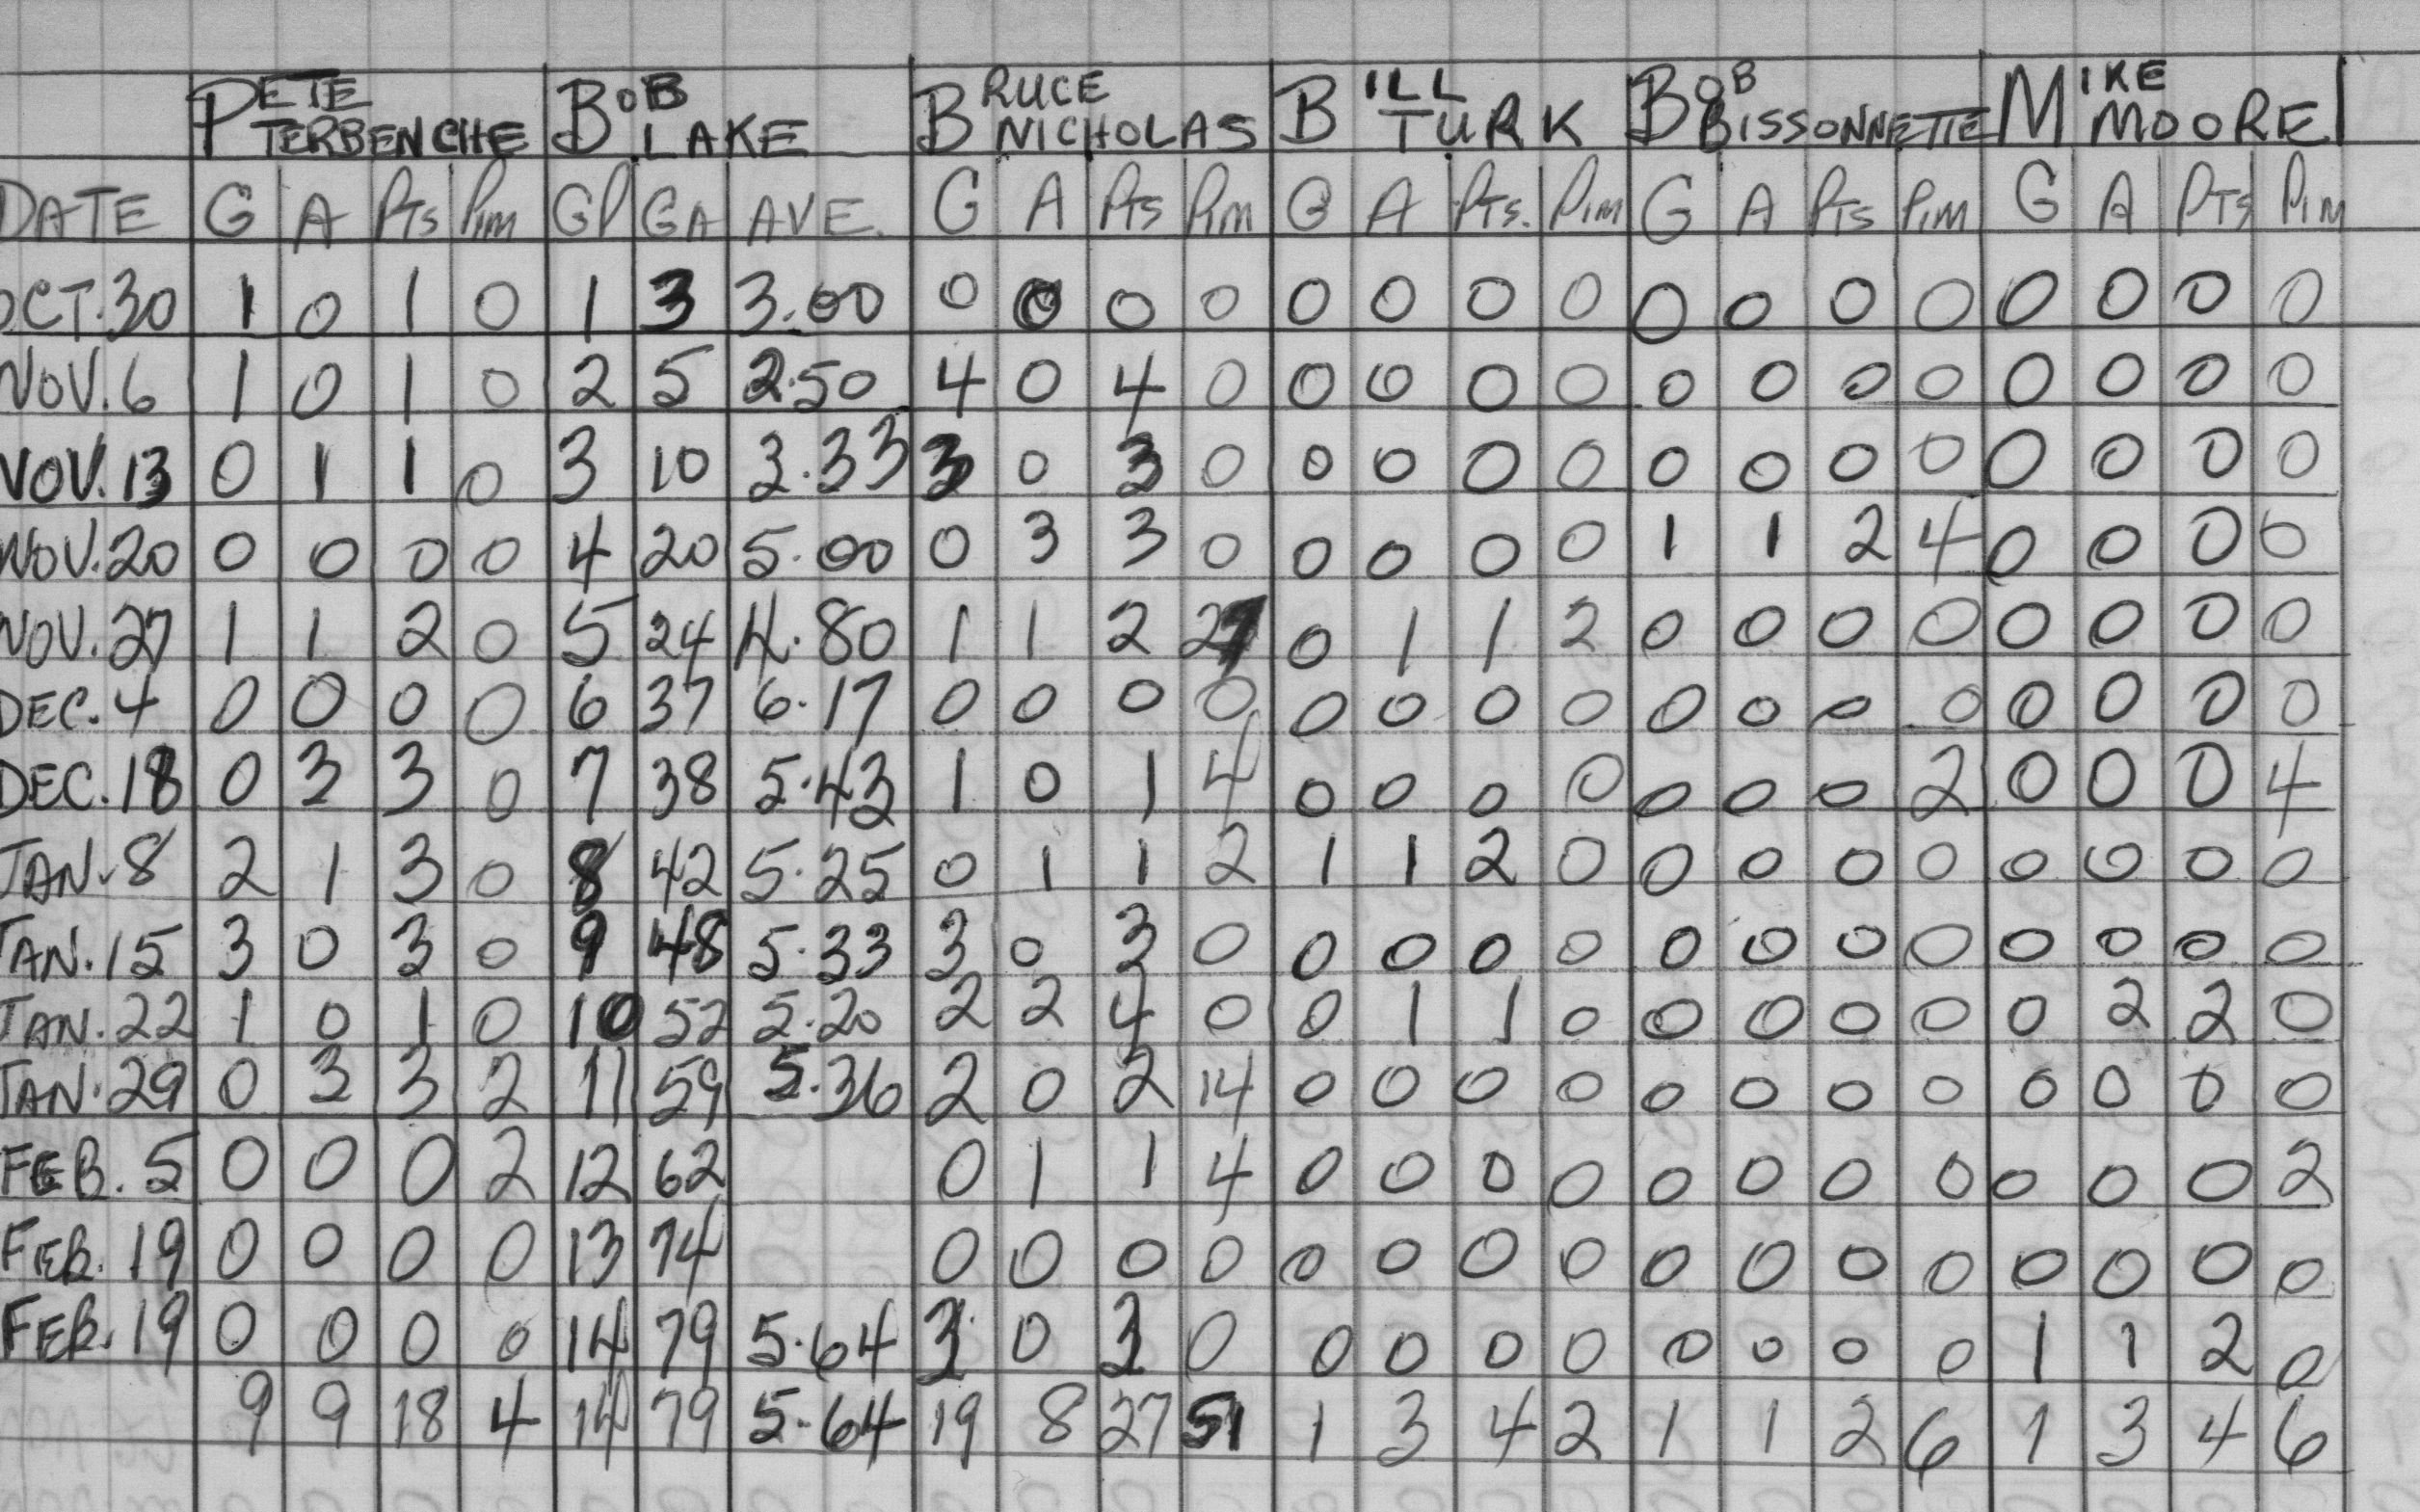 PETE TERBENCHE BOB LAKE BRUCE NICHOLAS BILL TURK BOB BISSONNETTE MIKE MOORE
DATE G A PTS PIM GP GA AVE. G A PTS PIM G A PTS. PIM G A PTS PIM G A PTS PIM
OCT.30 1 0 1 0 1 3 3.00 0 0 0 0 0 0 0 0 0 0 0 0 0 0 0 0
NOV.6 1 0 1 0 2 5 2.50 4 0 4 0 0 0 0 0 0 0 0 0 0 0 0 0
NOV.13 0 1 1 0 3 10 3.33 3 0 3 0 0 0 0 0 0 0 0 0 0 0 0 0
NOV.20 0 0 0 0 4 20 5.00 0 3 3 0 0 0 0 0 1 1 2 4 0 0 0 0
NOV.27 1 1 2 0 5 24 4.80 1 1 2 27 0 1 1 2 0 0 0 0 0 0 0 0
DEC.4 0 0 0 0 6 37 6.17 0 0 0 0 0 0 0 0 0 0 0 0 0 0 0 0
DEC.18 0 3 3 0 7 38 5.43 1 0 1 4 0 0 0 0 0 0 0 2 0 0 0 4
JAN.8 2 1 3 0 8 42 5.25 0 1 1 2 1 1 2 0 0 0 0 0 0 0 0 0
JAN.15 3 0 3 0 9 48 5.33 3 0 3 0 0 0 0 0 0 0 0 0 0 0 0 0
JAN.22 1 0 1 0 10 52 5.20 2 2 4 0 0 1 1 0 0 0 0 0 0 2 2 0
JAN.29 0 3 3 2 11 59 5.36 2 0 2 14 0 0 0 0 0 0 0 0 0 0 0 0
FEB.5 0 0 0 2 12 62 0 1 1 4 0 0 0 0 0 0 0 0 0 0 0 2
FEB.19 0 0 0 0 13 74 0 0 0 0 0 0 0 0 0 0 0 0 0 0 0 0
FEB.19 0 0 0 0 14 79 5.64 3 0 3 0 0 0 0 0 0 0 0 0 1 1 2 0
9 9 18 4 14 79 5.64 19 8 27 51 1 3 4 2 1 1 2 6 1 3 4 6